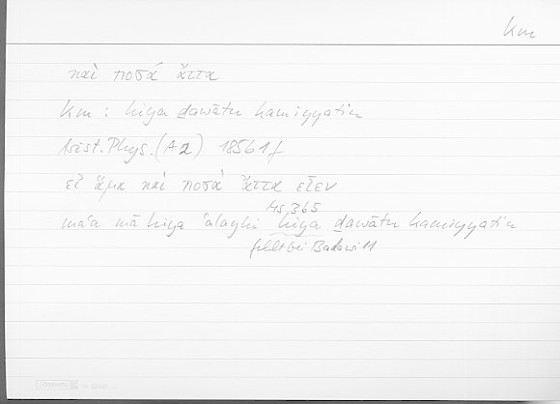 km
καὶ ποσά ἄττα
km : hiya ḏawātu kamiyyatin
Arist. Phys. (A2) 185b1f
εἰ ἅμα καὶ ποσά ἄττα εἶεν
Hs 365
maʿa mā hiya ʿalayhi hiya ḏawātu kamiyyatin
fehlt bei Badawi 11